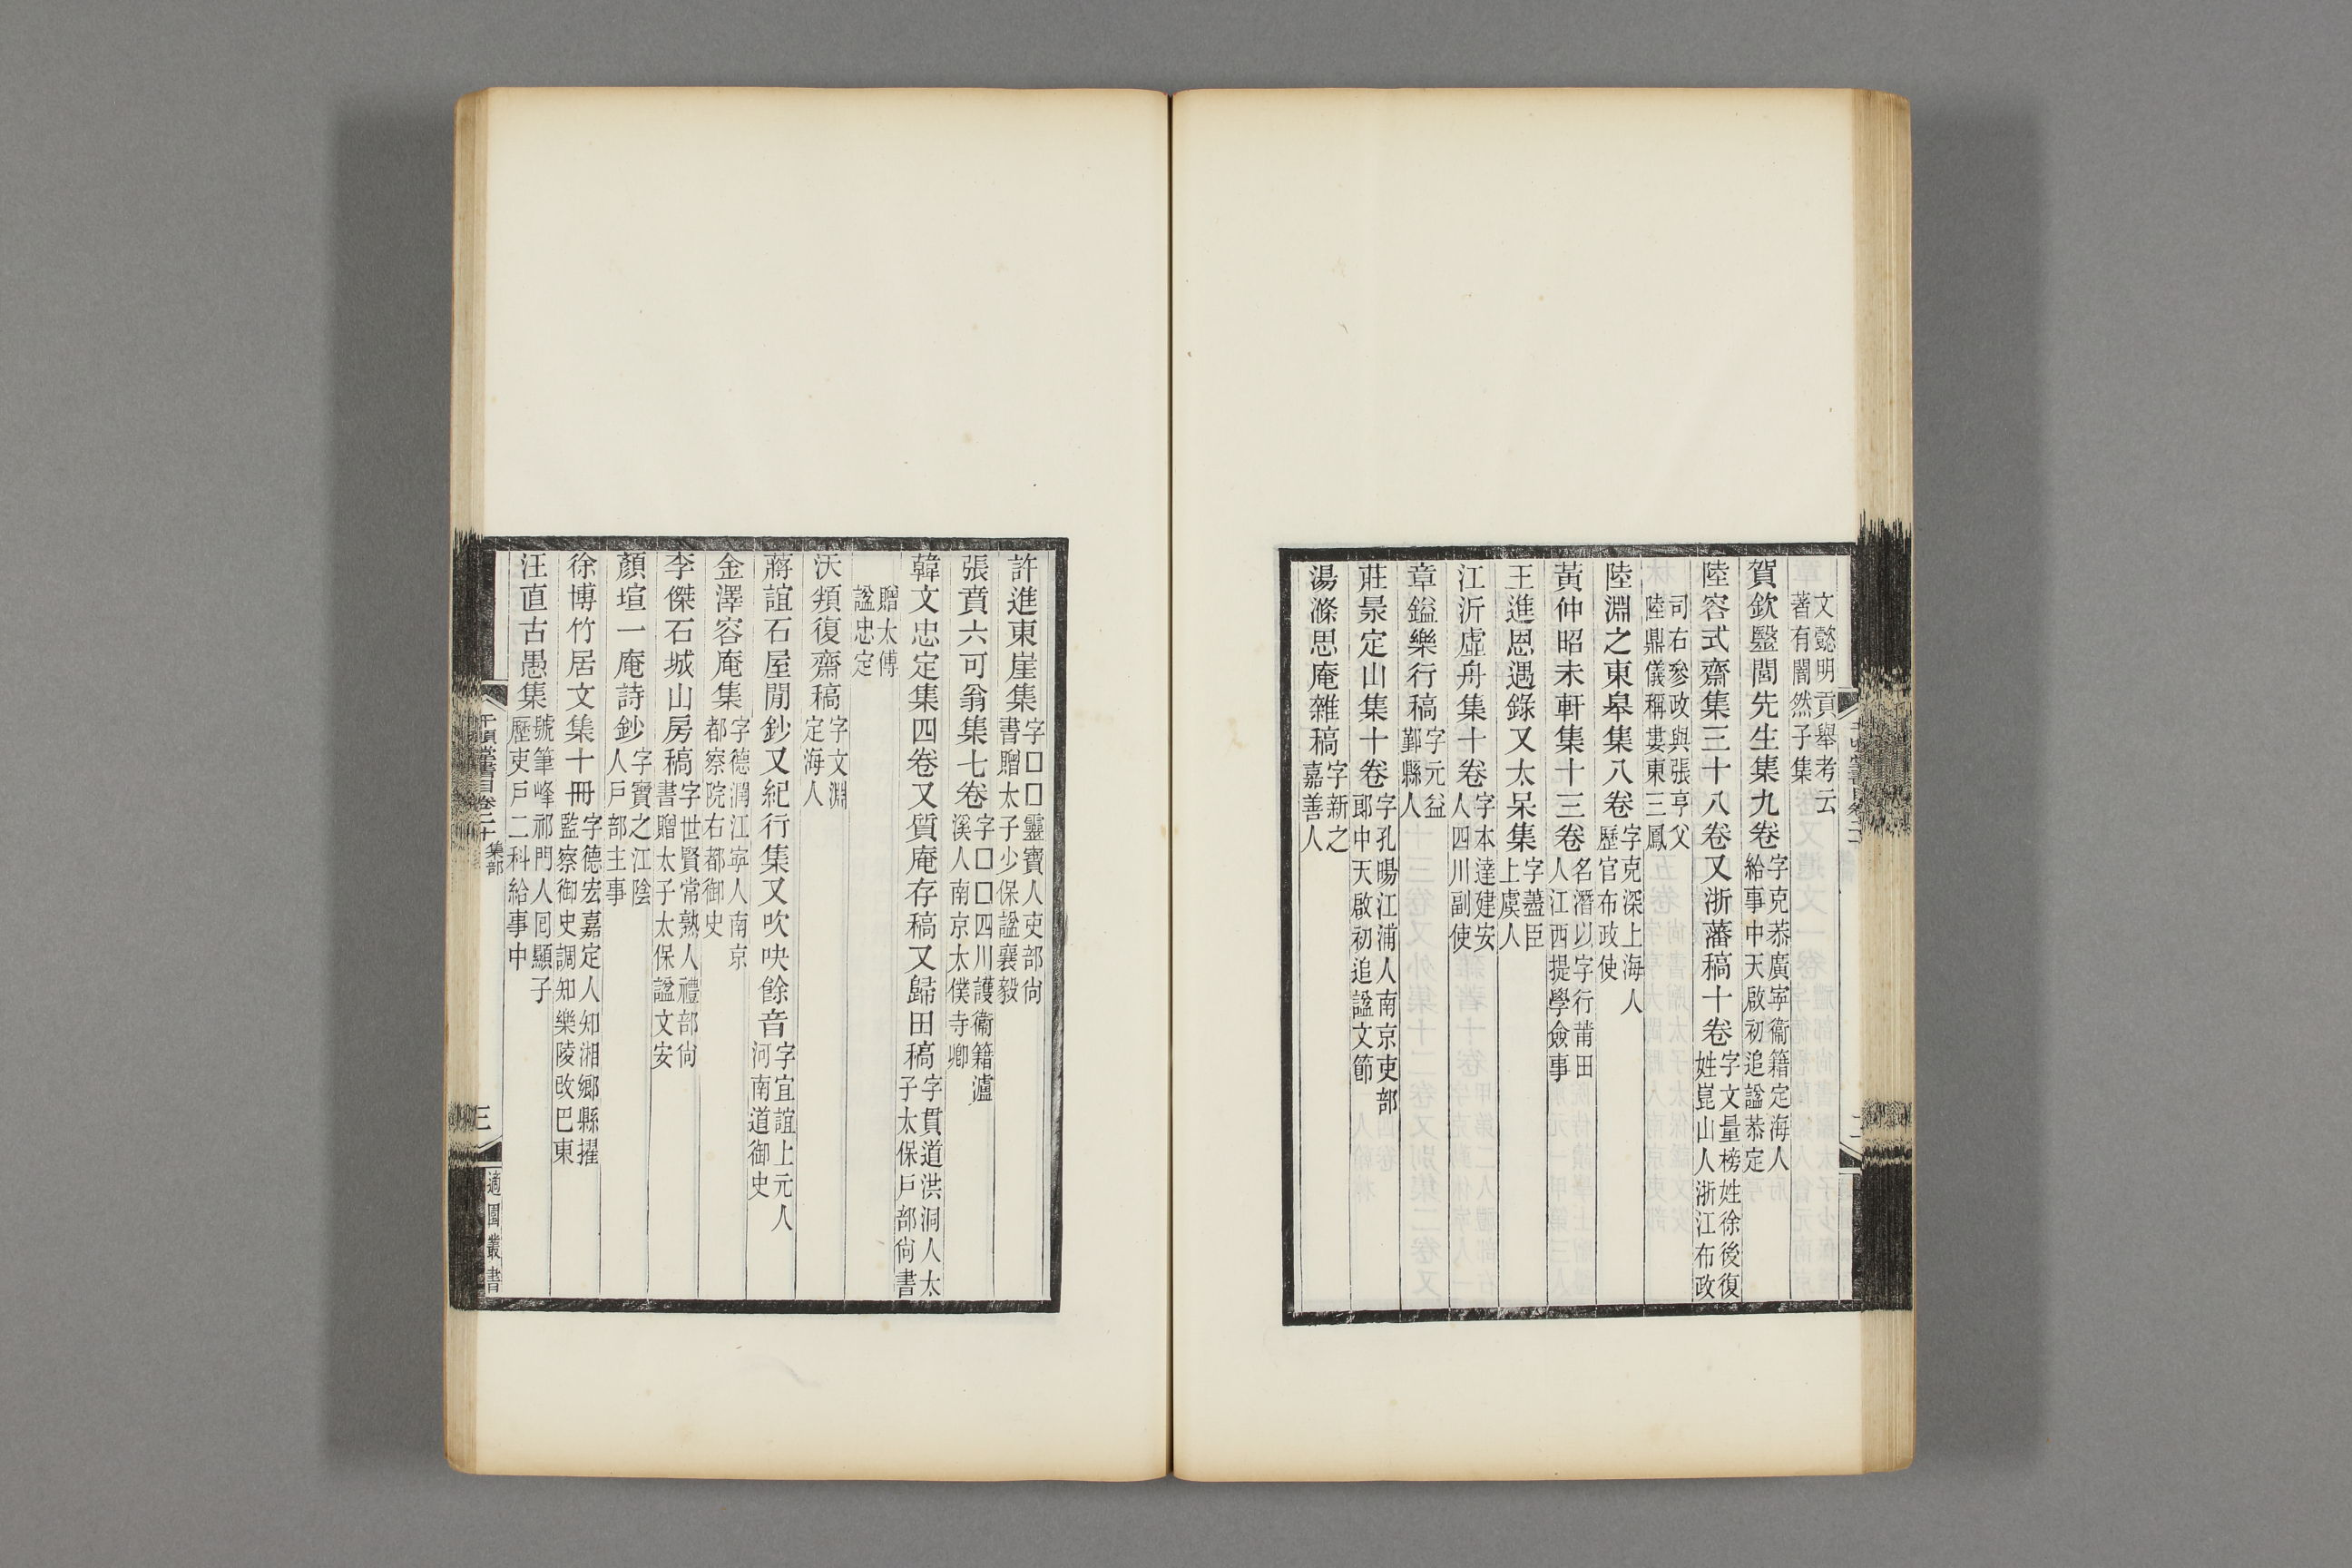 文懿明貢舉考云
著有闇然子集
賀欽毉閭先生集九卷字克恭廣寜衞籍定海人
給事中天啟初追諡恭定
陸容式齋集三十八卷又浙藩稿十卷字文量榜姓徐後復
姓崑山人浙江布政
司右參政與張亨父
陸鼎儀稱婁東三鳳
陸淵之東皋集八卷字克深上海人
歷官布政使
黃仲昭未軒集十三卷名潛以字行莆田
人江西提學僉事
王進恩遇錄又太呆集字藎臣
上虞人
江沂虛舟集十卷字本達建安
人四川副使
章鎰樂行稿字元益
鄞縣人
莊㫤定山集十卷字孔暘江浦人南京吏部
郎中天啟初追諡文節
湯滌思庵雜稿字新之
嘉善人
許進東崖集字□□靈寶人吏部尙
書贈太子少保諡襄毅
張賁六可翁集七卷字□□四川護衞籍瀘
溪人南京太僕寺卿
韓文忠定集四卷又質庵存稿又歸田稿字貫道洪洞人太
子太保戸部尙書
贈太傅
諡忠定
沃頖復齋稿字文淵
定海人
蔣誼石屋閒鈔又紀行集又吹吷餘音字宜誼上元人
河南道御史
金澤容庵集字德潤江寜人南京
都察院右都御史
李傑石城山房稿字世賢常熟人禮部尙
書贈太子太保諡文安
顏瑄一庵詩鈔字寶之江陰
人戸部主事
徐博竹居文集十冊字德宏嘉定人知湘鄉縣擢
監察御史調知樂陵改巴東
汪直古愚集號筆峰祁門人囘顯子
歷吏戸二科給事中
千頃堂書目卷二十 集部
三
適園叢書